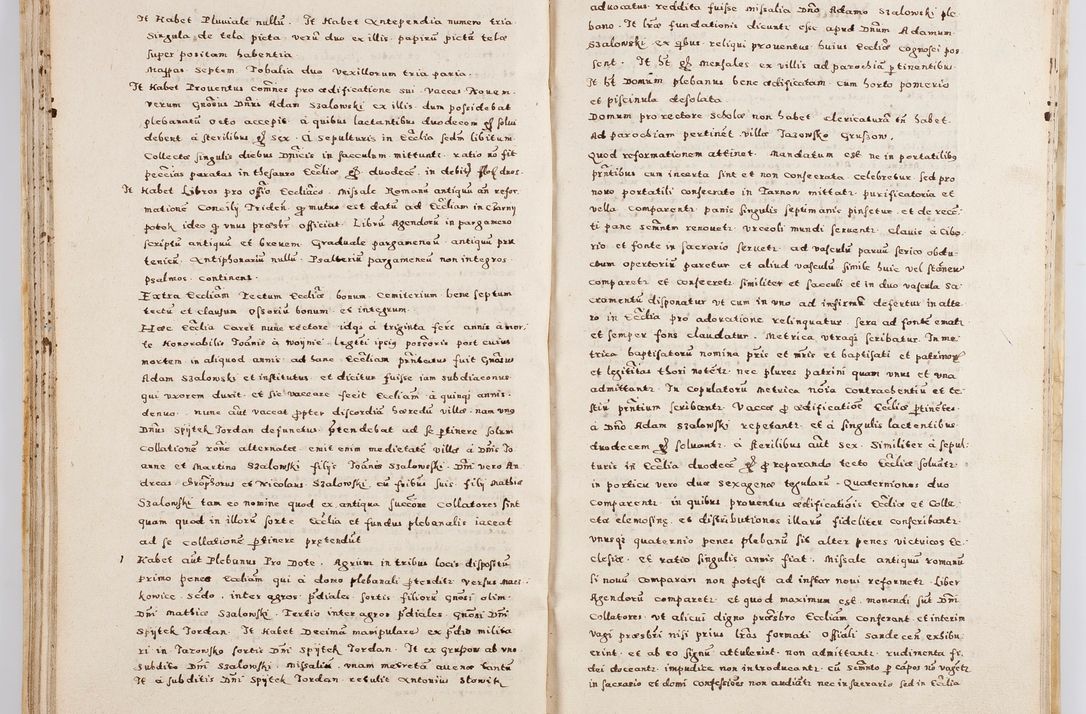 It Habet Pluviale nullũ. It Habet Antependia numero tria
Singula de tela picta. verũ duo ex illis papirũ pictũ telae
super positam habentia.
Mappas Septem. Tobalia duo vexillorum tria paria.
It Habet Proventus communes pro aedificatione sui. Vaccas Novem.
Verum Gñosus Dñus Adam Szalowski ex illis. dum possidebat
plebanatũ octo accepit. à quibus lactantibus duodecem solui
debent à sterilibus Sex. à Sepulturis in Ecclia sedm libitum.
Collectae singulis diebus Dñicis in sacculum mittuntr. ratio nõ fit
pecũias paratas in thesauro Eccliae duodecẽ. in debitis
It Habet Libros pro offio Eccliaco. Missale Romanũ antiquũ añ refor
mationẽ Concilij Tridẽn. mutuo est datũ ad Eccliam in Czarny
potok ideo vnus præsbr officiat. Librũ Agendorũ in pargameno
scriptũ antiquũ et brevem. Graduale pargamenoũ. antiquũ pru
tenicũ. Antiphonariũ nullũ. Psalteriũ pargameneũ non integros
psalmos continens.
Extra Eccliam Tectum Eccliae bonum. Cemiterium bene septum
tectũ et clausum Ossoriũ bonum et integrum.
Haec Ecclia Caret nunc rectore idqȝ à triginta ferè annis à mor
te Honorabilis Joãnis à Woynie legitti ipsiȝ possoris post cuius
mortem in aliquod annis ad hanc Eccliam pñtatus fuit Gñosus
Adam Szalowski et institutus et dicitur fuisse iam subdiaconus
qui vxorem duxit et sic vaccare fecit Eccliam à quinqȝ annis.
denuo. nunc aũt vaccat propter discordiã haeredũ villae. nam vnȝ
Dñus Spytek Jordan defunctus ptendebat ad se ptinere solum
collationẽ rõne alternatae. emit enim medietatẽ villae à Dñis Jo
anne et Martino Szalowski filijs Joãnis Szalowski. Dñi vero An
dreas et Nicolaus Szalowski cũ fribus suis filij Mathiae
Szalowski tam eo nomine quod ex antiqua succõne collatores sint
quam quod in illorũ sorte Ecclia et fundus plebanalis iaceat
ad se collationẽ ptinere prętendũt.
1 Habet aũt Plebanus Pro Dote. Agrum in tribus locis dispositũ
primo penes Eccliam qui à domo plebanali ptenditr versus Mas
kowice. Sedo. inter agros pdiales sortis filiorũ Gñosi olim
Dñi Mathiae Szalowski. Tertio inter agros pdiales Gñosi Dñi
Spytek Jordan. It Habet Decimã manipularẽ ex pdio milita
ri in Tarowsko sortis Dñi Spytek Jordan. It ex Gruszow ab vno
subdito Dñi Szalowski. Missaliũ vnam mexretã avenae tantũ
It à subditis Dñi Spytek Jordan retulit Antonius Slowik
advocatus reddita fuisse missalia Dño Adamo Szalowski ple
bano. It lrae fundationis dicuntr esse apud Dñum Adamum
Szalowski ex quibus reliqui proventus huius Eccliae cognosci pos
sent. It ht Mensales ex villis ad parochiã ptinentibus
It ht Domũm plebanus bene aedificatam cum horto pomerio
et piscinula desolata.
Domum pro rectore Scholae non habet Clericaturã tñ habet.
Ad parochiam pertinet villae Tarowsko Gruszow.
Quod reformationem attinet. Mandatum est ne in portatilibȝ
pñtibus cum incerta sint et non consecrata celebretur sed pro
novo portatili consecrato in Tarnow mittatr. purificatoria et
vella comparentr. panis singulis septimanis pinsetur et de recẽ
ti pane Scmẽntm renovetr. Vrceoli mundi serventr. Clavis à cibo
rio et fonte in sacrario servetr. ad vasculũ parvũ serico obdu
ctum opertoriũ paretur et aliud vasculũ simile huic vel stãneũ
comparetr. et consecretr similiter et sacculi et in duo vascula Sa
cramentũ disponatur vt cum in vno ad infirmũ defertur in alte
ro in Ecclia pro adoratione relinquatur. Sera ad fontẽ ematr
et semper fons claudatur. Metrica vtraqȝ scribatur. In me
trica baptisatorũ nomina pris et mris et baptisati et patrinorȝ
et legititas thori notetr. nec plures patrini quam vnus et vna
admittantr. In copulatorũ metrica nõia contrahentiũ et te
stiũ pñtium scribantr. Vaccae p aedificatiõe Eccliae ptinẽtes
à Dño Adam Szalowski repetantr et à singulis lactentibus
duodecem solvantr. à sterilibus aũt sex. Similiter à sepul
turis in Ecclia duodecẽ p reparando tecto Eccliae solvãtr
in porticu vero duae sexagenae tegularũ. Quaterniones duo
comparentr. in quibus proventus aedificatiõis Eccliae et colle
cta elemosinę. et distributiones illarũ fideliter conscribantr.
vnusqȝ quaternio penes plebanũ sit alter penes vitricos Ec
clesiae. et ratio singulis annis fiat. Missale antiquũ romanũ
si novũ comparari non potest ad instar novi reformetr. Liber
Agendorũ comparetr. et quod maximum est. monendi sũt Dñi
Collatores vt alicui digno præsbro Eccliam conferant et interim
vagi præsbri nisi prius lras formati Offiali Sandecen. exhibu
erint. et ab eo signũ attulerint. non admittantr. rudimenta fi
dei doceantr. impudicae non introducantr. cũ Scmẽnto p cãpos nõ vagẽtr
in sacrario et domi confessiões non audiãtr nec in sacrario sed in Ecclia